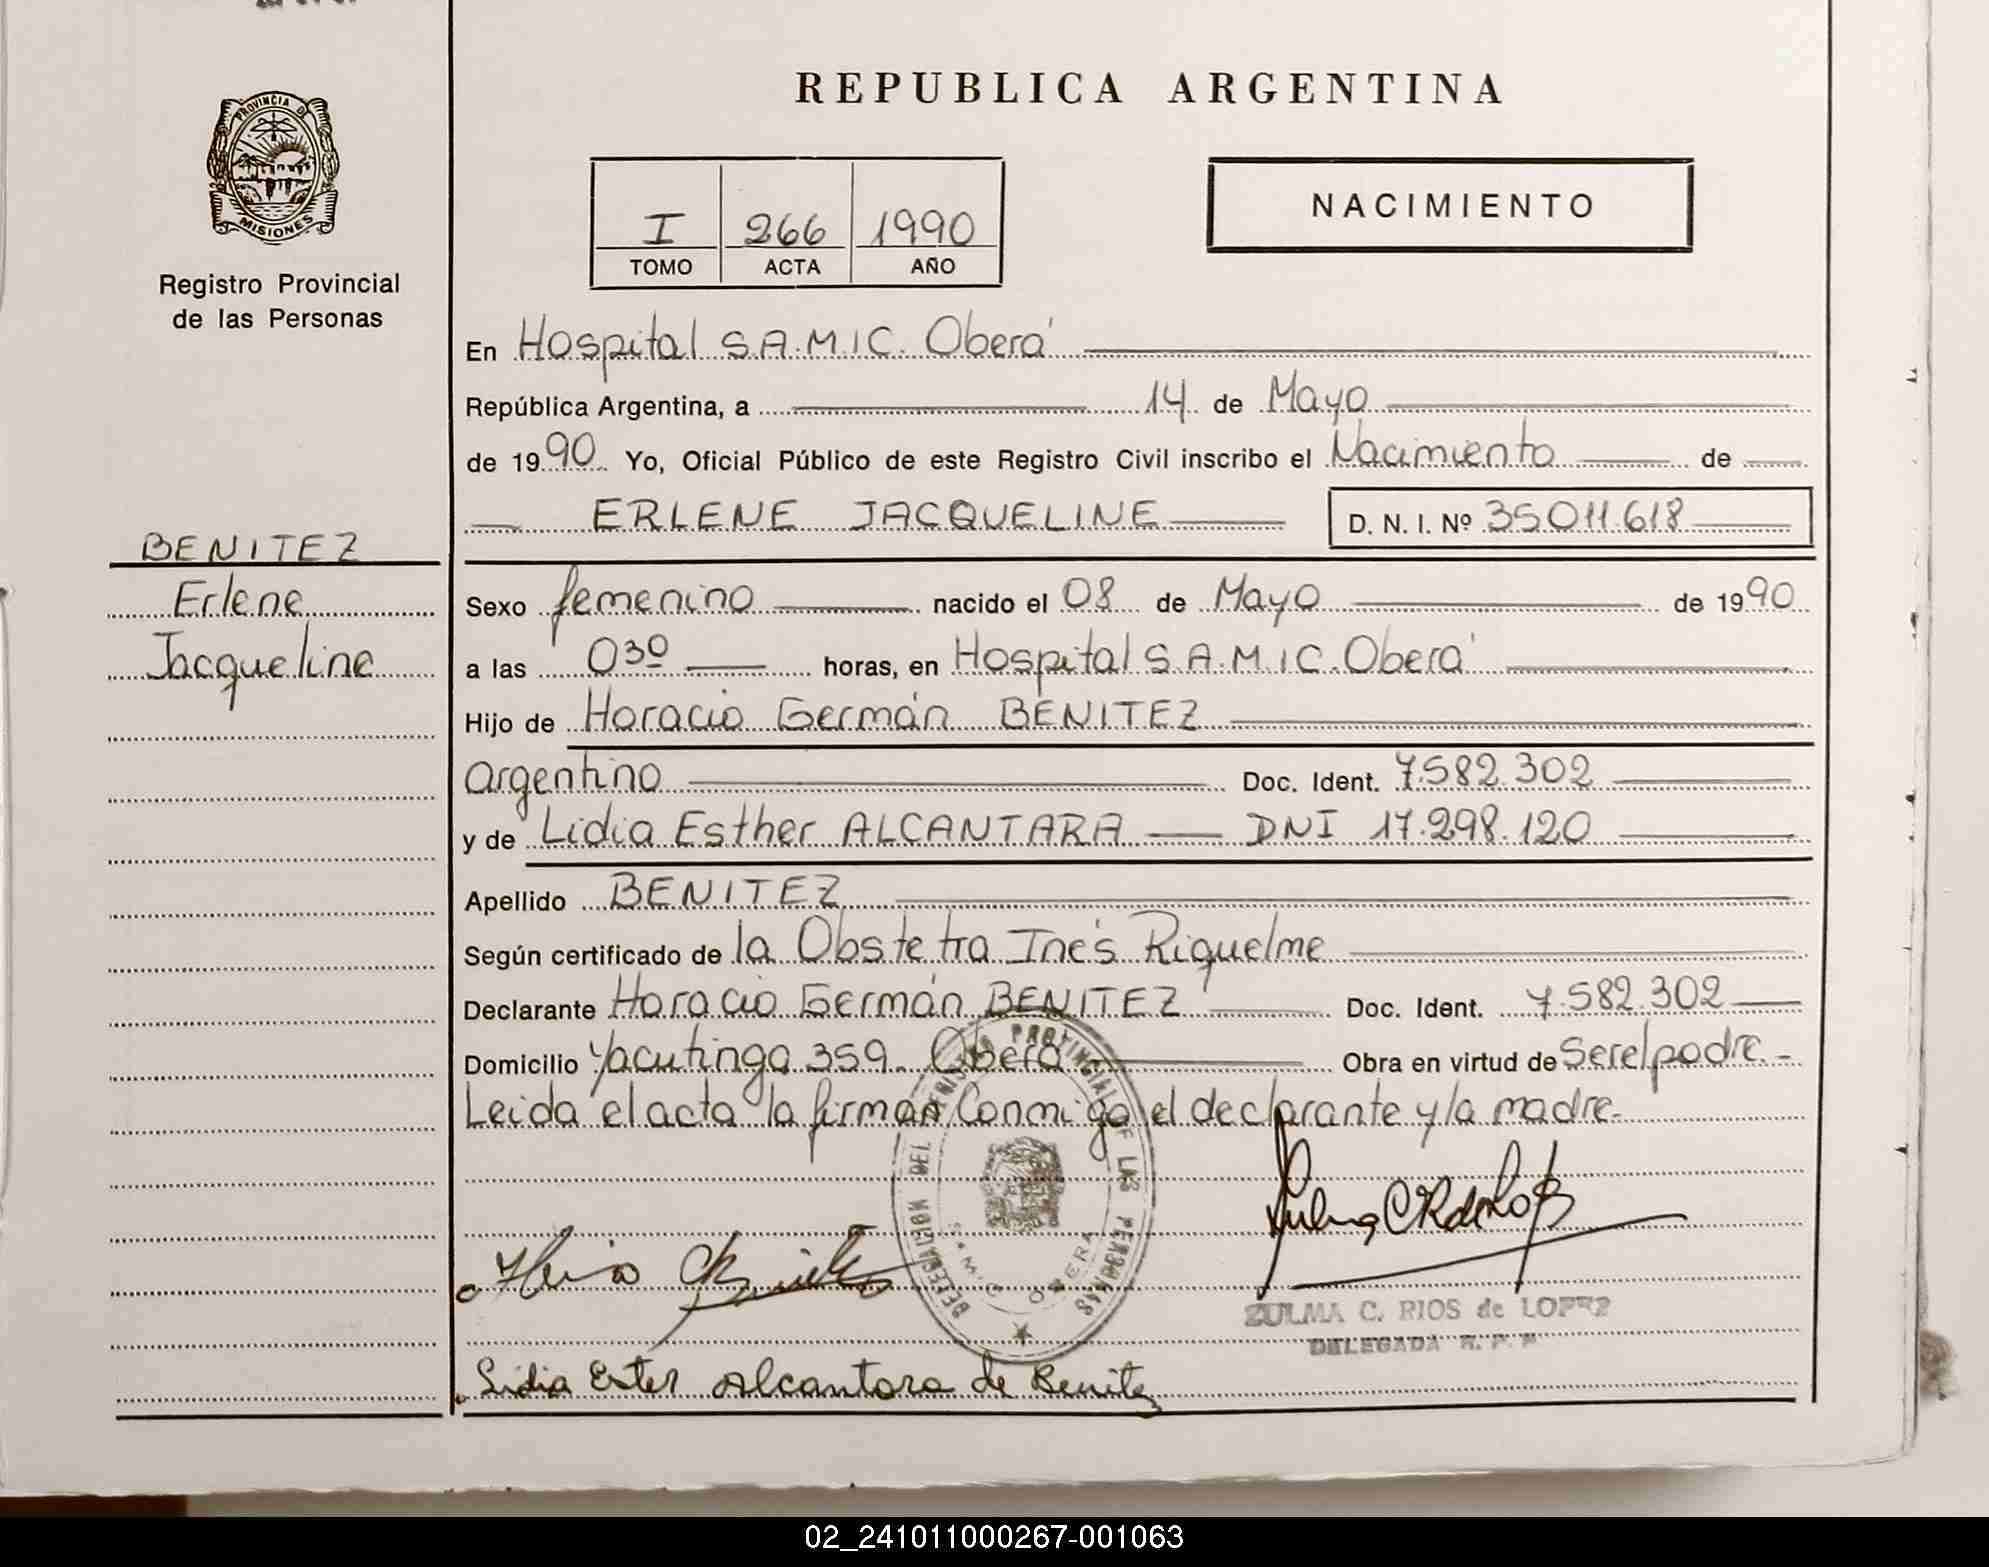 REPUBLICA ARGENTINA
PROVINCIA DE MISIONES
Registro Provincial
de las Personas
I 266 1990
TOMO ACTA AÑO
NACIMIENTO
En Hospital S.A.M.I.C. Oberá
República Argentina, a 14 de Mayo
de 1990 Yo, Oficial Público de este Registro Civil inscribo el Nacimiento de
ERLENE JACQUELINE D. N. I. Nº 35011.618
BENITEZ
Erlene
Jacqueline
Sexo femenino nacido el 08 de Mayo de 1990
a las 03º horas, en Hospital S.A.M.I.C. Oberá
Hijo de Horacio Germán BENITEZ
Argentino Doc. Ident. 7.582.302
y de Lidia Esther ALCANTARA DNI 17.298.120
Apellido BENITEZ
Según certificado de la Obstetra Inés Riquelme
Declarante Horacio Germán BENITEZ Doc. Ident. 7.582.302
Domicilio Yacutinga 359 Oberá Obra en virtud de Ser el padre.-
Leida el acta la firman Conmigo el declarante y la madre.
DELEGACION DEL REGISTRO PROVINCIAL DE LAS PERSONAS
SAMIC OBERA
ZULMA C. RIOS de LOPEZ
DELEGADA R. P. P.
Lidia Ester Alcantara de Benitez
02_241011000267-001063